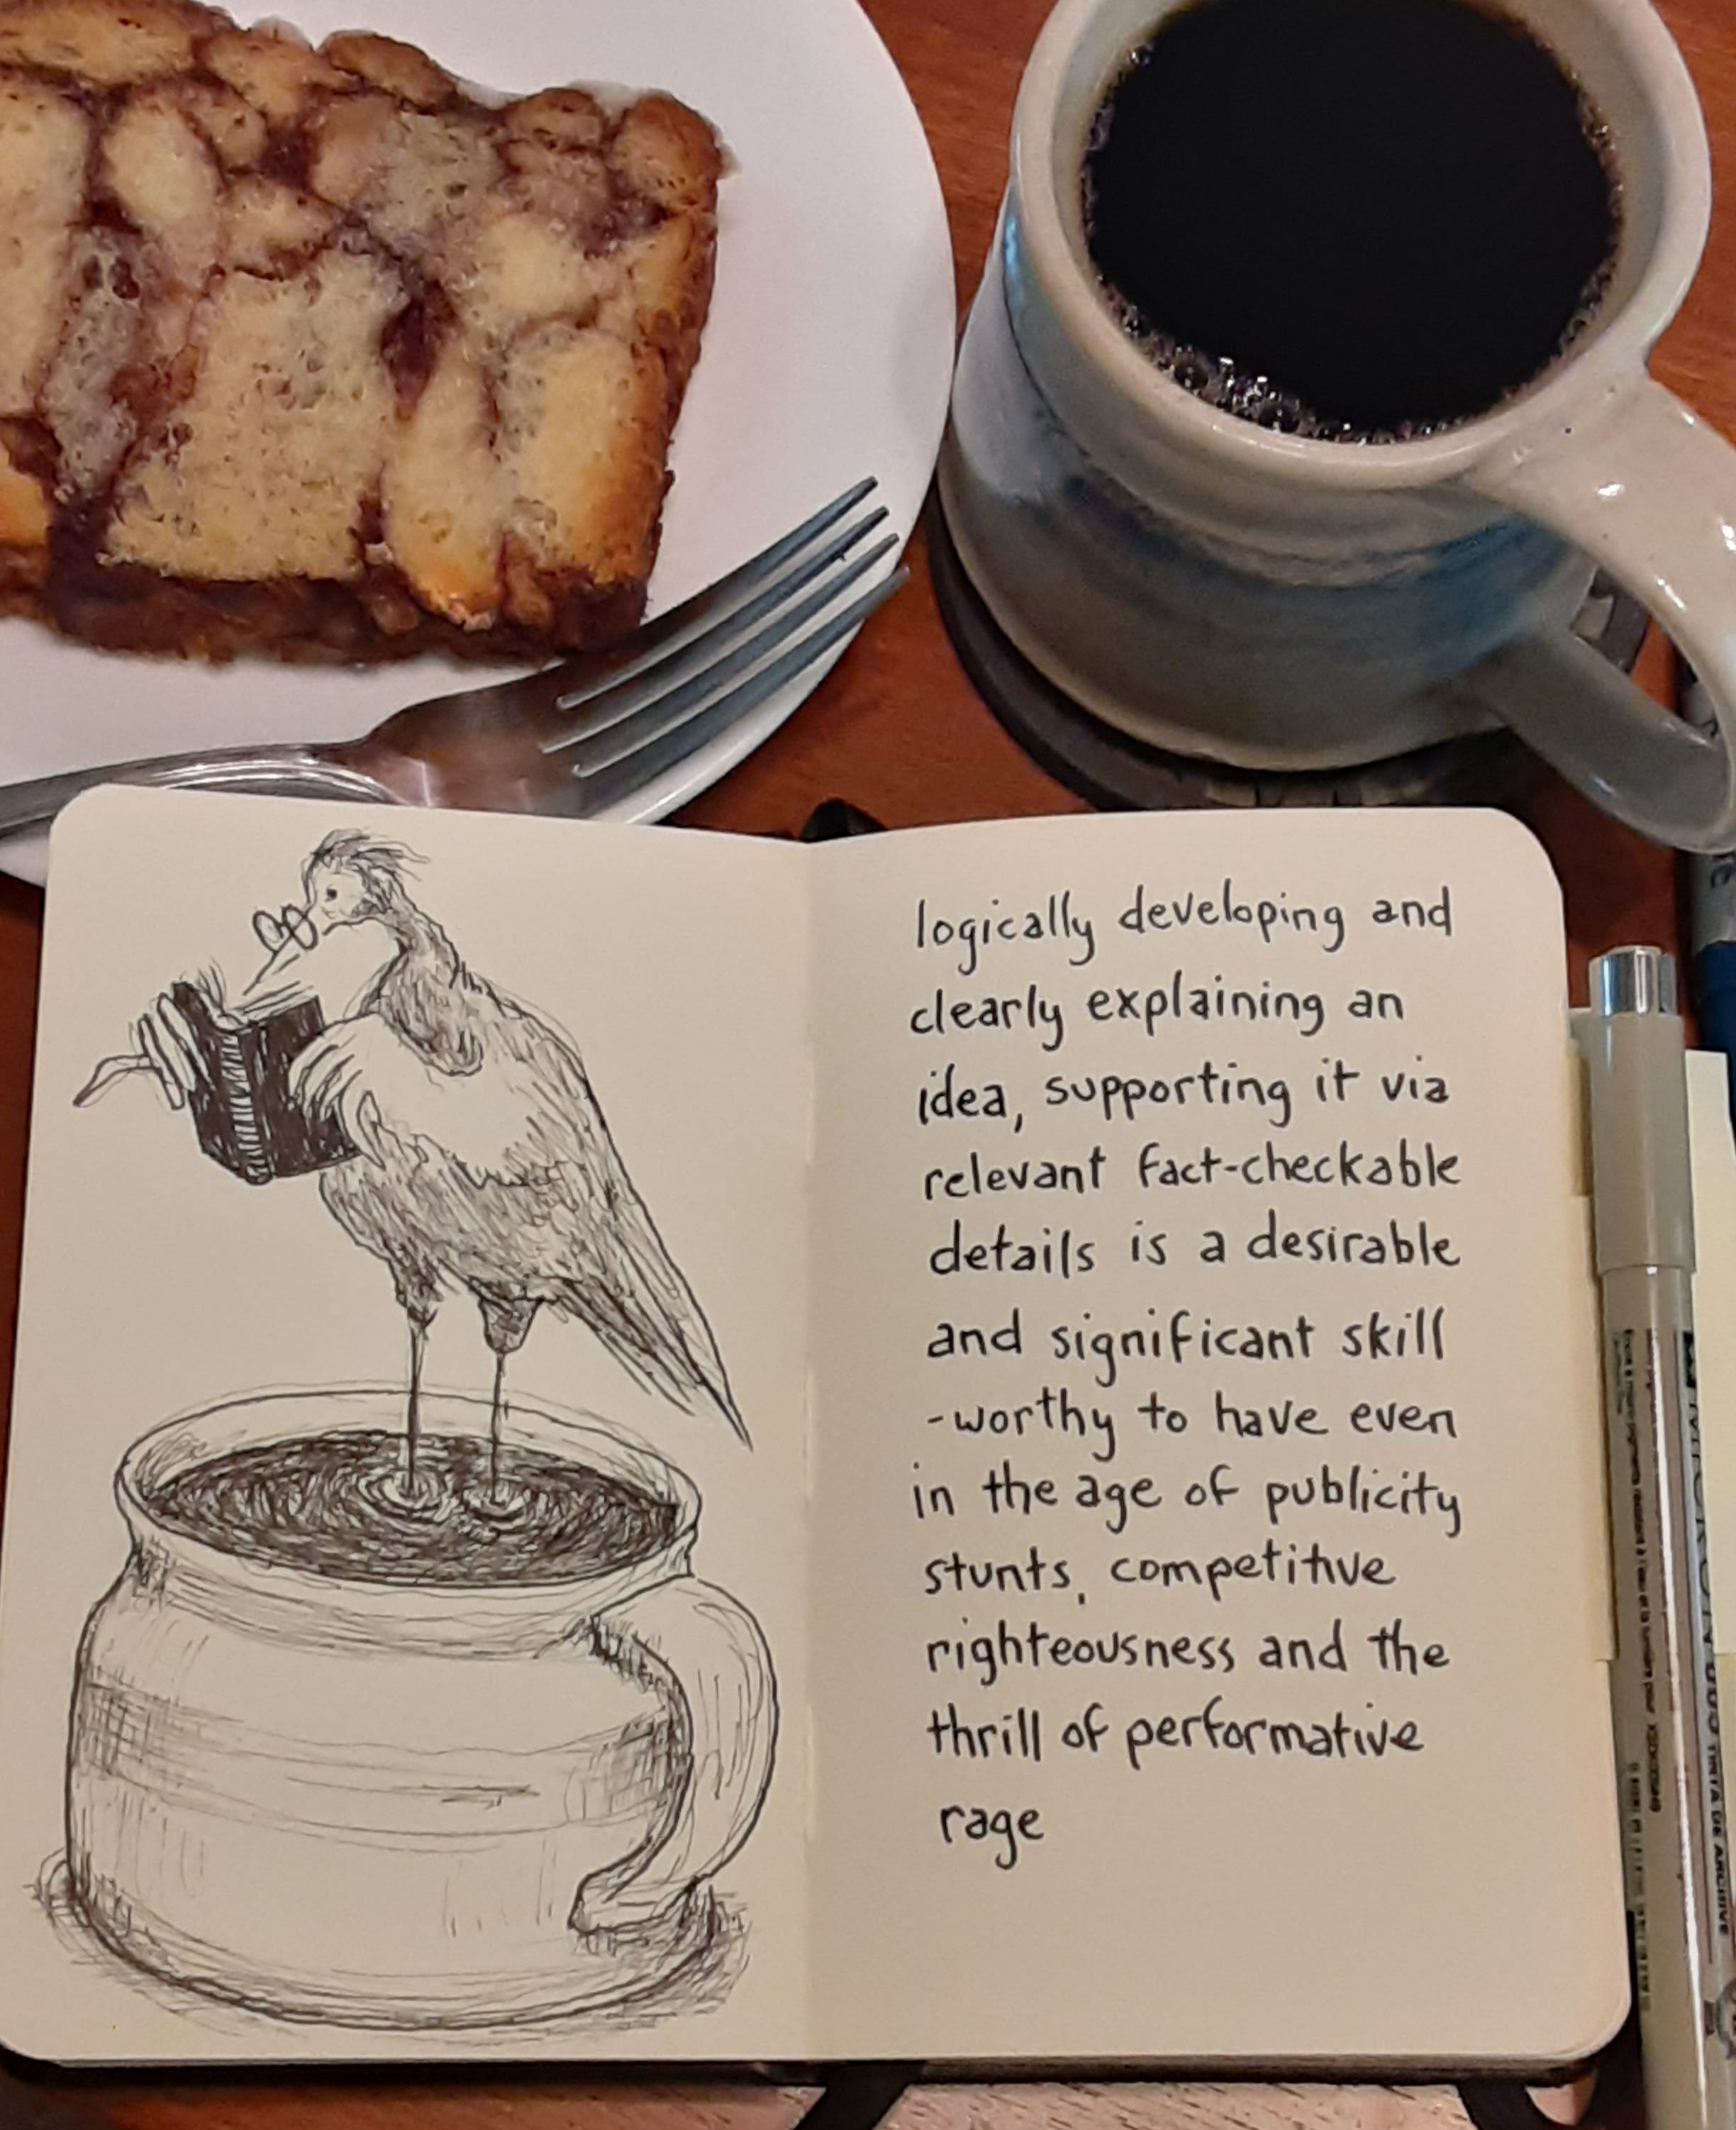 logically developing and
clearly explaining an
idea, supporting it via
relevant fact-checkable
details is a desirable
and significant skill
-worthy to have even
in the age of publicity
stunts, competitive
righteousness and the
thrill of performative
rage